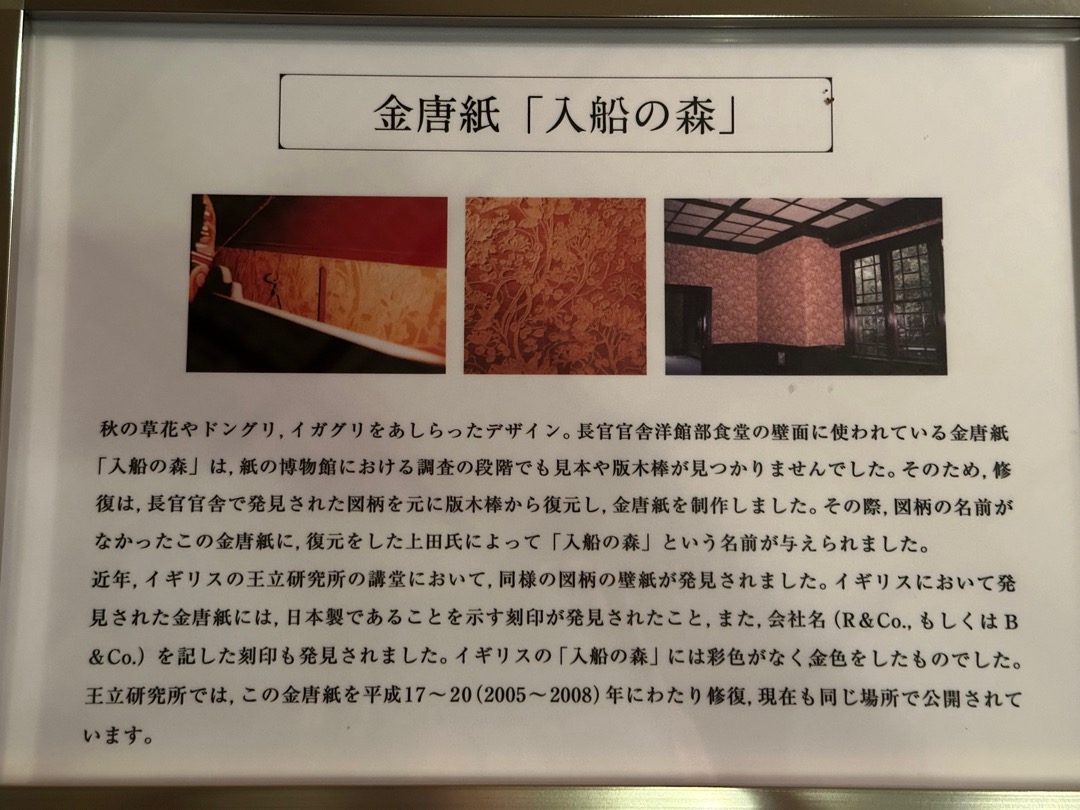 金唐紙「入船の森」
秋の草花やドングリ,イガグリをあしらったデザイン。長官官舎洋館部食堂の壁面に使われている金唐紙
「入船の森」は,紙の博物館における調査の段階でも見本や版木棒が見つかりませんでした。そのため,修
復は,長官官舎で発見された図柄を元に版木棒から復元し,金唐紙を制作しました。その際,図柄の名前が
なかったこの金唐紙に,復元をした上田氏によって「入船の森」という名前が与えられました。
近年,イギリスの王立研究所の講堂において,同様の図柄の壁紙が発見されました。イギリスにおいて発
見された金唐紙には,日本製であることを示す刻印が発見されたこと,また,会社名(R&Co.,もしくは B
&Co.)を記した刻印も発見されました。イギリスの「入船の森」には彩色がなく,金色をしたものでした。
王立研究所では,この金唐紙を平成17〜20(2005〜2008)年にわたり修復,現在も同じ場所で公開されて
います。